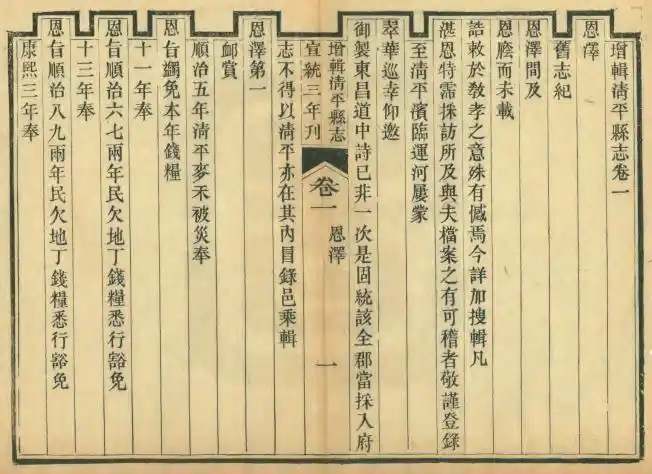 增輯清平縣志卷一
恩澤
舊志紀
恩澤間及
恩廕而未載
誥敕於敎孝之意殊有憾焉今詳加搜輯凡
湛恩特霈採訪所及與夫檔案之有可稽者敬謹登錄
至清平濱臨運河屢蒙
翠華巡幸仰邀
御製東昌道中詩已非一次是固統該全郡當採入府
增輯清平縣志
宣統三年刊
卷一
恩澤
一
志不得以清平亦在其內目錄邑乘輯
恩澤第一
卹賞
順治五年清平麥禾被災奉
恩旨蠲免本年錢糧
十一年奉
恩旨順治六七兩年民欠地丁錢糧悉行豁免
十三年奉
恩旨順治八九兩年民欠地丁錢糧悉行豁免
康熙三年奉